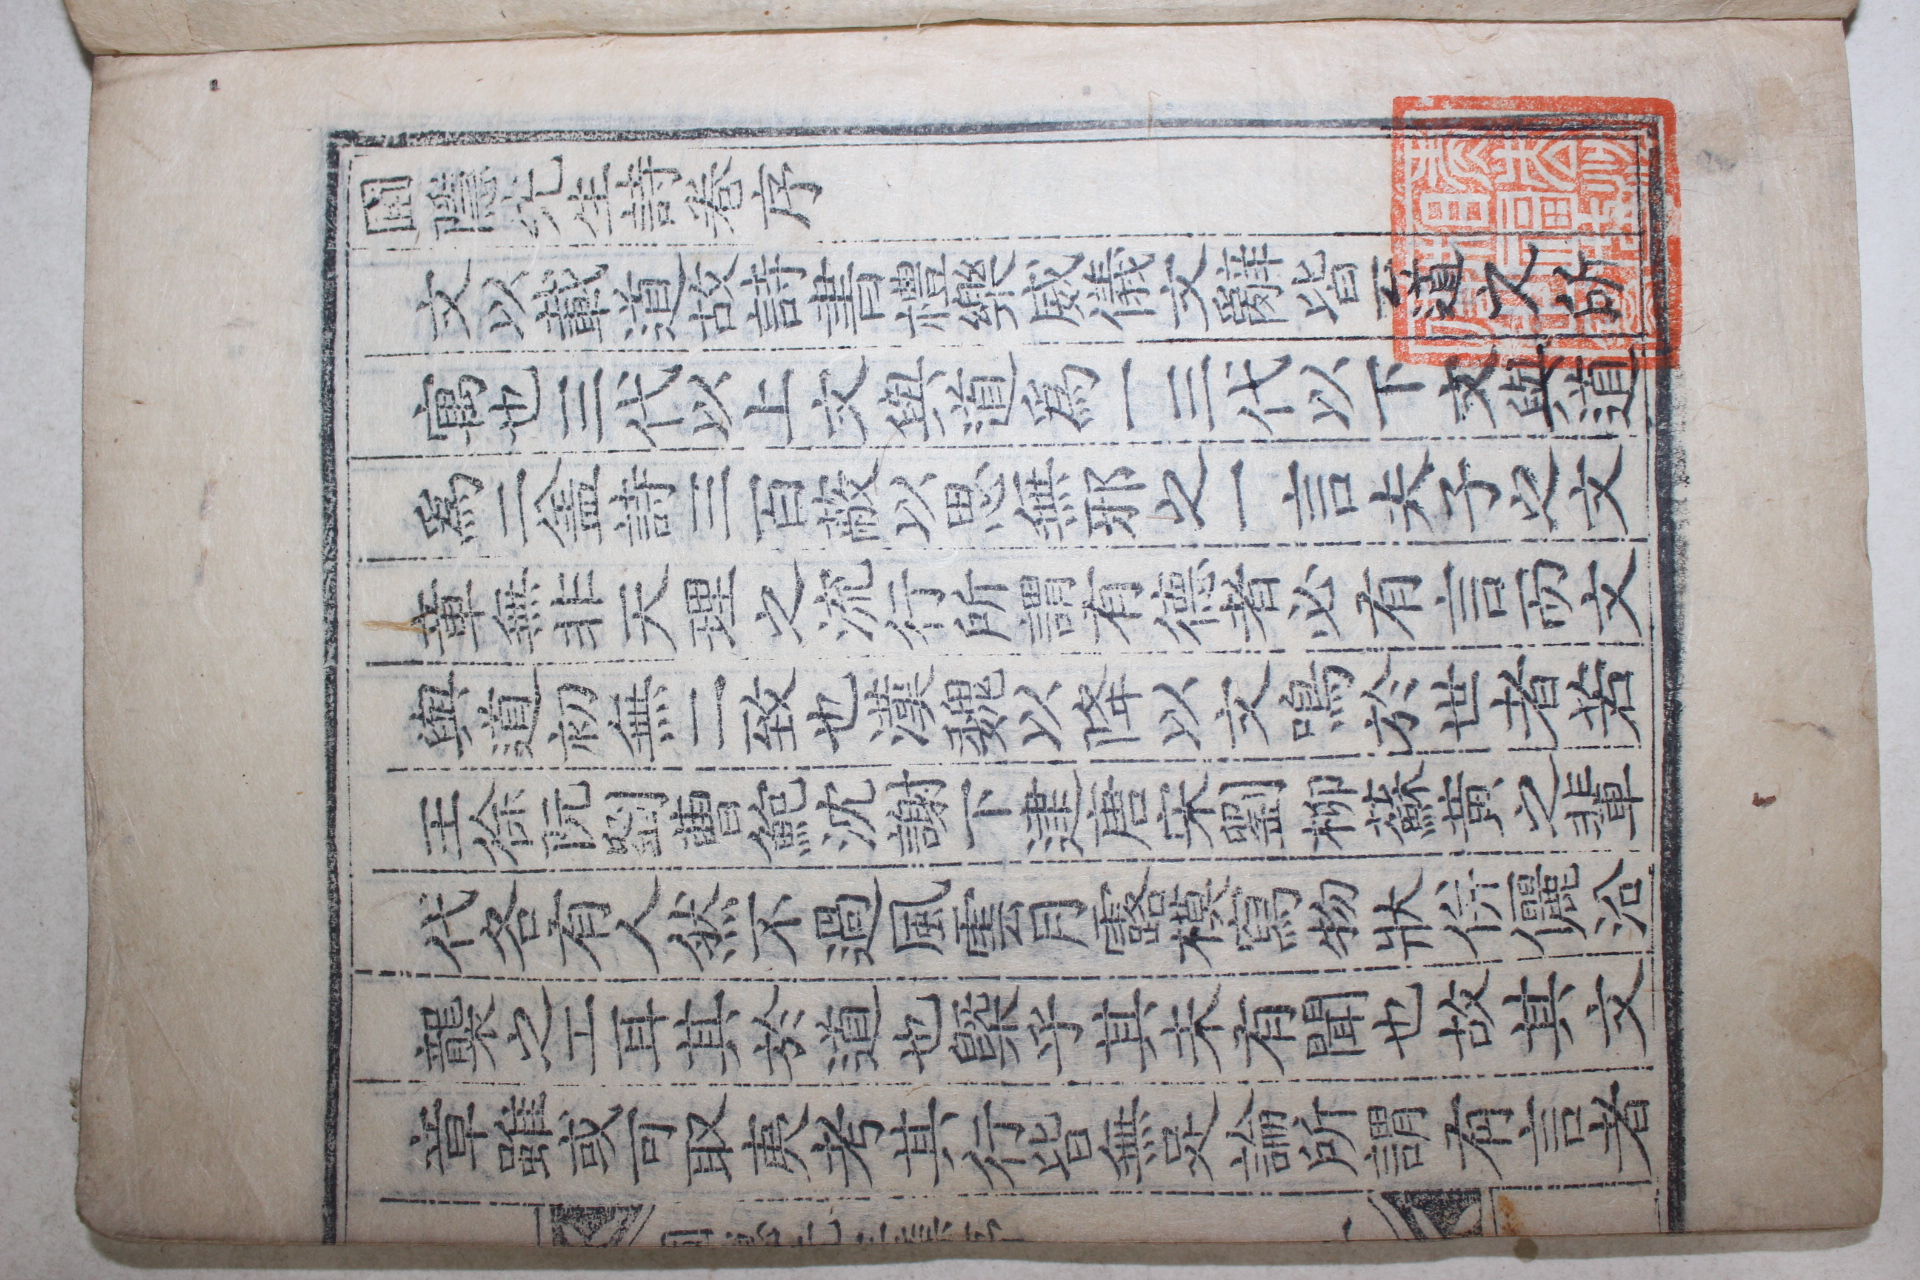 圃隱先生詩卷序
文以載道故詩書禮樂威儀文辭皆至道之所
寓也三代以上文與道爲一三代以下文與道
爲二盖詩三百蔽以思無邪之一言夫子之文
章無非天理之流行所謂有德者必有言而文
與道初無二致也漢魏以降以文鳴於世者若
王徐阮劉曹鮑沈謝下逮唐宋劉柳蘇黃之輩
代各有人然不過風雲月露模寫物狀倂儷沿
襲之工耳其於道也槩乎其未有聞也故其文
章雖或可取夷考其行皆無足論所謂有言者